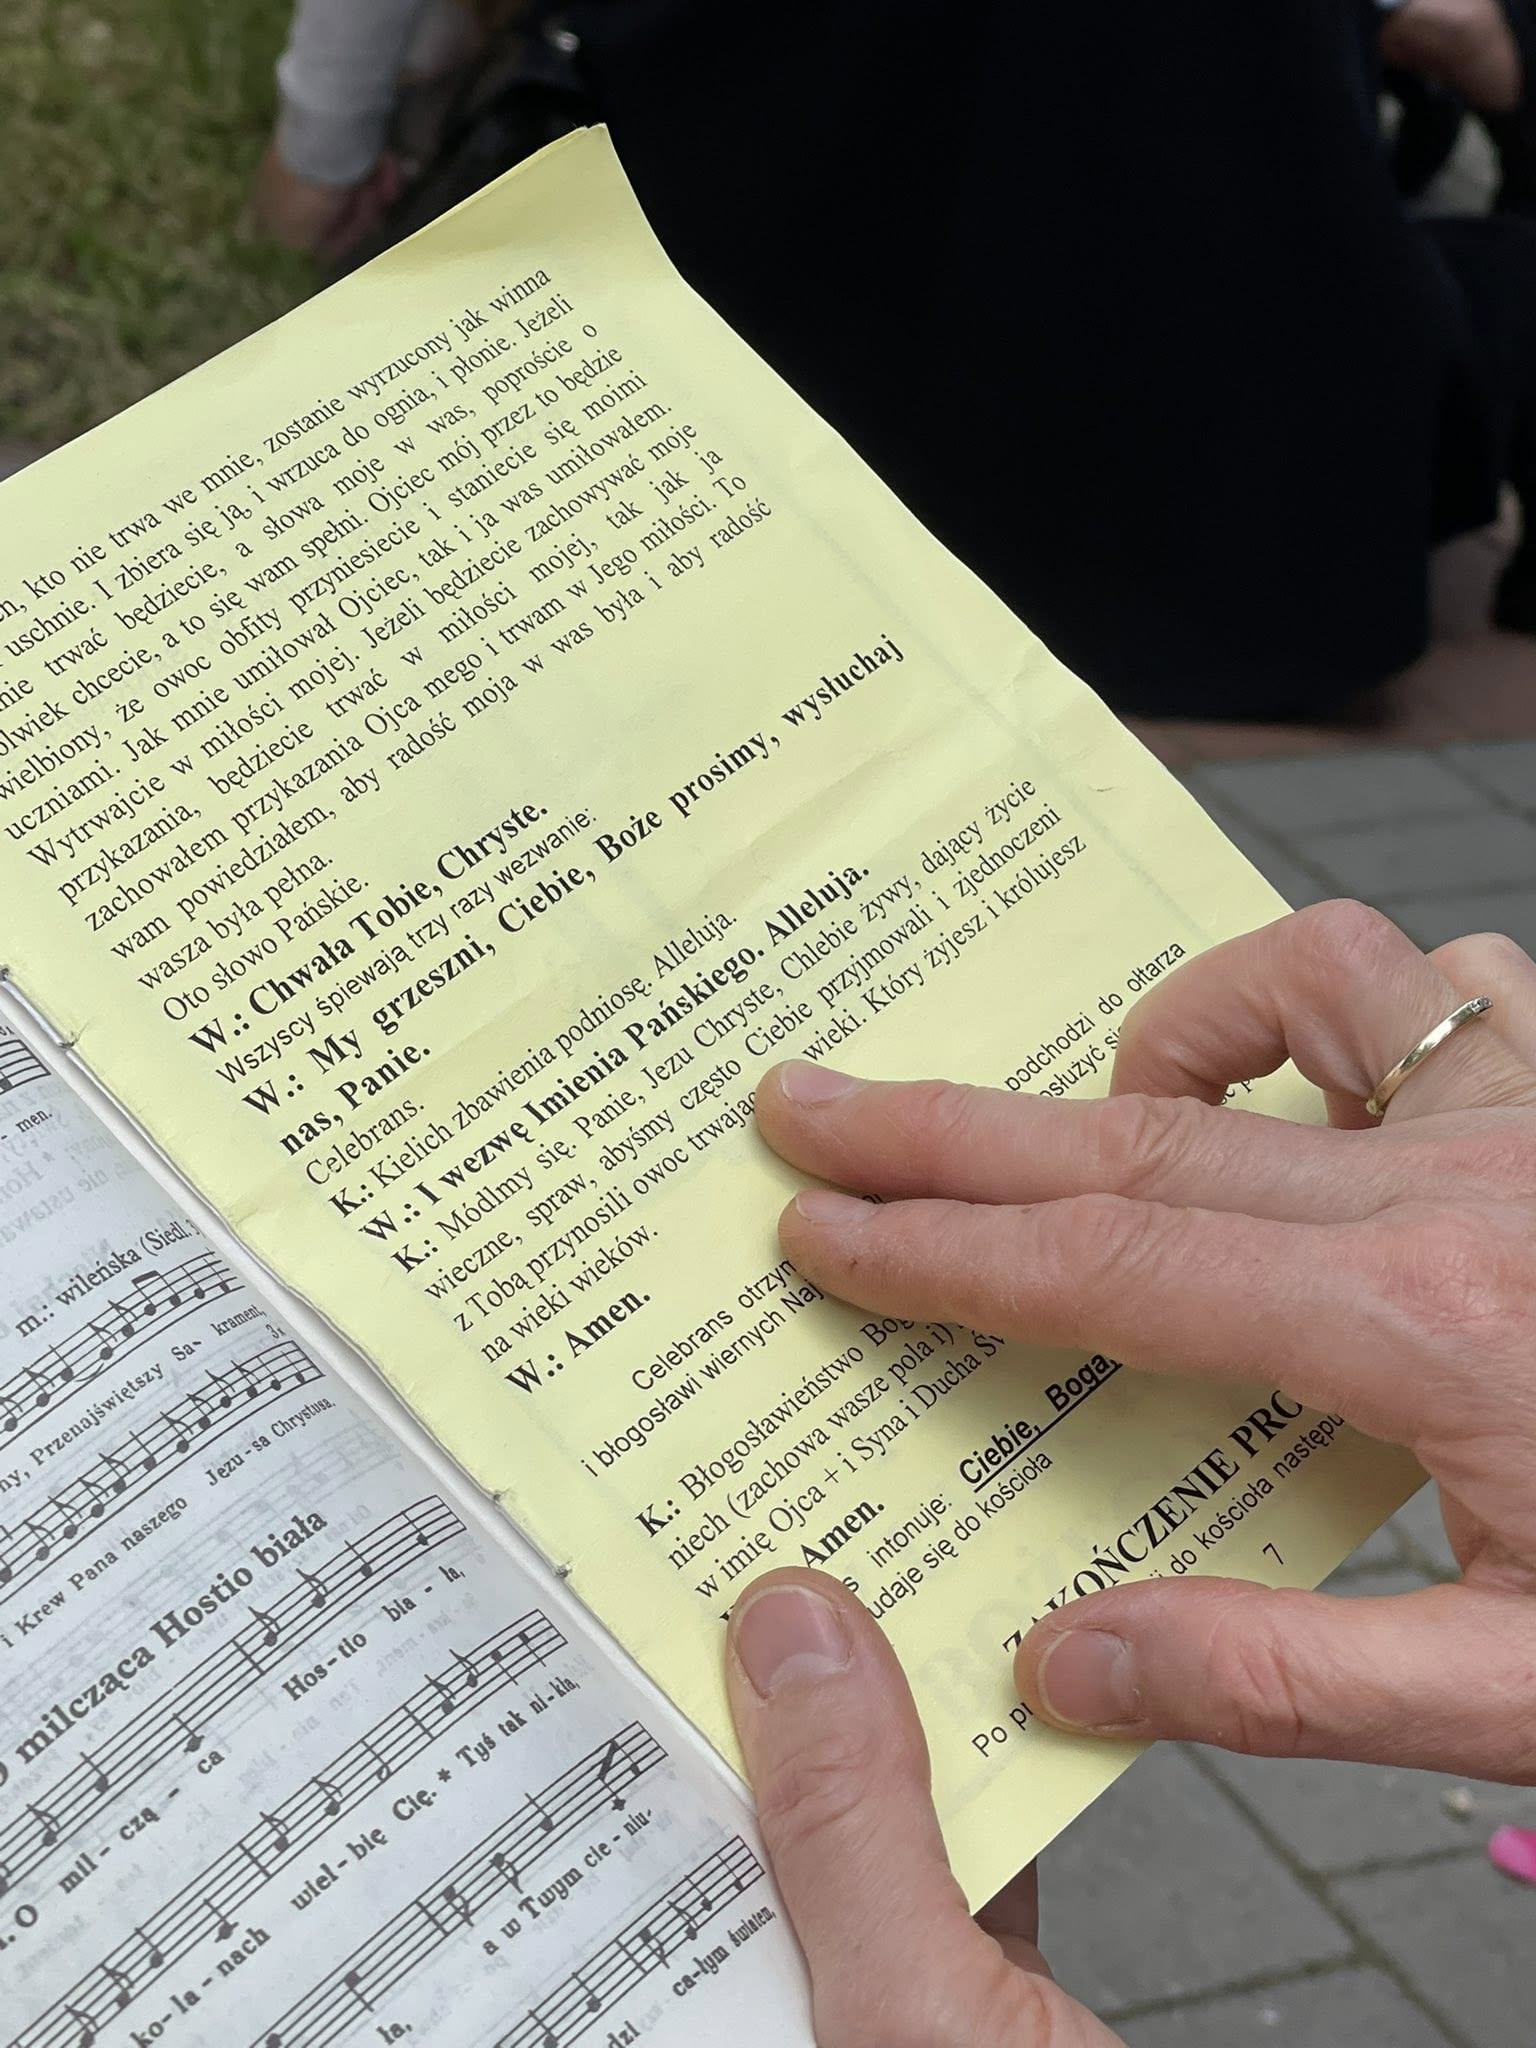 kto nie trwa we mnie, zostanie wyrzucony jak winna
uschnie. I zbiera się ją, i wrzuca do ognia, i płonie. Jeżeli
trwać będziecie, a słowa moje w was, poproście o
chcecie, a to się wam spełni. Ojciec mój przez to będzie
że owoc obfity przyniesiecie i staniecie się moimi
uczniami. Jak mnie umiłował Ojciec, tak i ja was umiłowałem.
Wytrwajcie w miłości mojej. Jeżeli będziecie zachowywać moje
przykazania, będziecie trwać w miłości mojej, tak jak ja
zachowałem przykazania Ojca mego i trwam w Jego miłości. To
wam powiedziałem, aby radość moja w was była i aby radość
wasza była pełna.
Oto słowo Pańskie.
W.: Chwała Tobie, Chryste.
Wszyscy śpiewają trzy razy wezwanie:
W.: My grzeszni, Ciebie, Boże prosimy, wysłuchaj
nas, Panie.
Celebrans.
K.: Kielich zbawienia podniosę. Alleluja.
W.: I wezwę Imienia Pańskiego. Alleluja.
K.: Módlmy się. Panie, Jezu Chryste, Chlebie żywy, dający życie
wieczne, spraw, abyśmy często Ciebie przyjmowali i zjednoczeni
z Tobą przynosili owoc wieki. Który żyjesz i królujesz
na wieki wieków.
W.: Amen.
Celebrans podchodzi do ołtarza
i błogosławi wiernych
K.: Błogosławieństwo
niech (zachowa wasze pola i)
w imię Ojca + i Syna i Ducha
Amen.
intonuje: Ciebie, Boga,
udaje się do kościoła
ZAKOŃCZENIE
Po do kościoła
7
men.
m.: wileńska (Siedl.
Przenajświętszy Sa- krament,
3x
i Krew Pana naszego Jezu-sa Chrystusa.
O milcząca Hostio biała
O mil - czą - ca Hos - tio bia - ła,
ko - la - nach wiel - bię Cię. * Tyś tak ni - kła,
ła, a w Twym cie - niu
ca-łym światem,